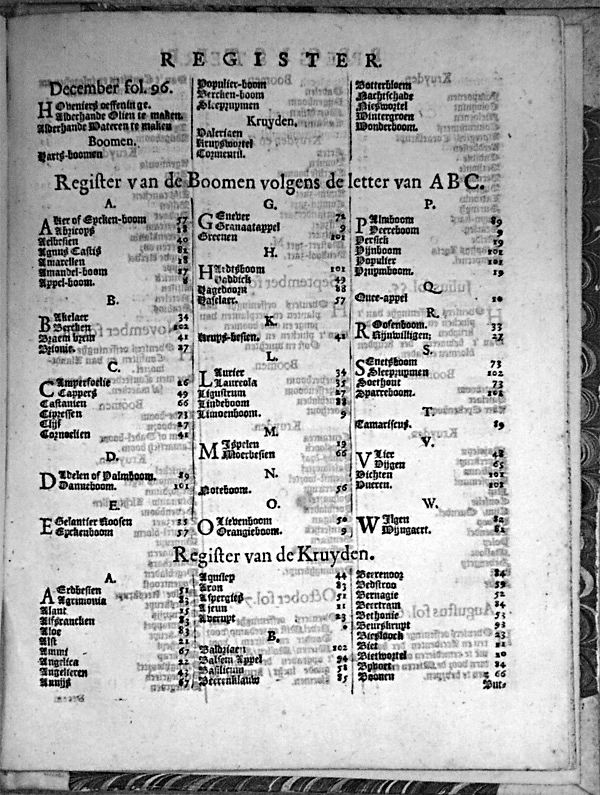 REGISTER.
December fol. 96.
Hoveniers oeffeninge.
Alderhande Olien te maken.
Alderhande Wateren te maken
Boomen.
Harts-boomen
Populier-boom
Bercken-boom
Sleepruymen
Kruyden.
Valeriaen
Kruyswortel
Tormentil.
Botterbloem
Nachtschade
Nieswortel
Wintergroen
Wonderboom.
Register van de Boomen volgens de letter van ABC.
A.
Aker of Eycken-boom 57
Abricoys 18
Aelbesien 40
Agnus Castis 81
Amarellen 18
Amandel-boom 17
Appel-boom. 8
B.
Bakelaer 34
Bercken 102
Braem brein 41
Brionie. 27
C.
Camperfoelie 26
Cappers 49
Castanien 66
Cipressen 73
Clijf 27
Cornoelien 41
D.
Dadelen of Palmboom. 89
Danneboom. 101
E.
Egelantier Roosen 33
Eyckenboom 57
G.
Genever 72
Granaatappel 9
Greenen 101
H.
Hartsboom 101
Heddick 49
Hageboom 88
Haselaer. 57
K.
Kruys-besien. 41
L.
Laurier 34
Laureola 35
Ligustrum 27
Lindeboom 88
Limoenboom. 9
M.
Mispelen 19
Moerbesien 66
N.
Noteboom. 56
O.
Olievenboom 50
Orangieboom. 9
P.
Palmboom 89
Peereboom 9
Persick 19
Pijnboom 101
Populier 101
Pruymboom. 19
Q.
Quee-appel 10
R.
Roosenboom. 33
Rijnwilligen: 27
S.
Senetsboom 73
Sleepruymen 102
Soethout 73
Sparreboom. 101
T.
Tamariscus. 89
V.
Vlier 48
Vijgen 65
Vichten 101
Vueren. 101
W.
Wilgen 82
Wijngaert. 81
Register van de Kruyden.
A.
Aerdbesien 51
Agrimonia 83
Alant 15
Alfsrancken 83
Aloe 83
Alst 21
Ammi 67
Angelica 22
Angelieren
Annijs 67
Aquilep 44
Aron 83
Aspergies 51
Ajeun 21
Averupt 23
B.
Baldriaen 102
Balsem Appel 94
Basilicum 52
Beerenklauw 85
Beerenoor 84
Bedstroo 59
Bernagie 52
Beertram 84
Bethonie 53
Beurskrupt 93
Bieslook 23
Biet 21
Bietwortel 20
Byvoet 84
Boonen 66
But-